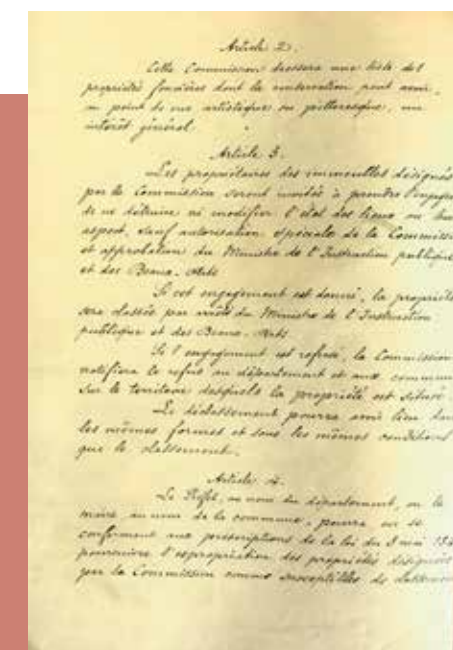 Article 2.
Cette Commission dressera une liste des
propriétés foncières dont la conservation peut avoir,
au point de vue artistique ou pittoresque, un
intérêt général.
Article 3.
Les propriétaires des immeubles désignés
par la Commission seront invités à prendre l'engage
de ne détruire ni modifier l'état des lieux ou leur
aspect, sauf autorisation spéciale de la Commissi
et approbation du Ministre de l'Instruction publique
et des Beaux-Arts
Si cet engagement est donné, la propriété
sera classée par arrêté du Ministre de l'Instruction
publique et des Beaux-Arts
Si l'engagement est refusé, la Commission
notifiera le refus au département et aux commun
sur le territoire desquels la propriété est située.
Le déclassement pourra avoir lieu dans
les mêmes formes et sous les mêmes conditions
que le classement.
Article 4.
Le Préfet, au nom du département, ou le
maire au nom de la commune, pourra en se
conformant aux prescriptions de la loi du 3 mai 184
poursuivre l'expropriation des propriétés désignées
par la Commission comme susceptibles de classemen